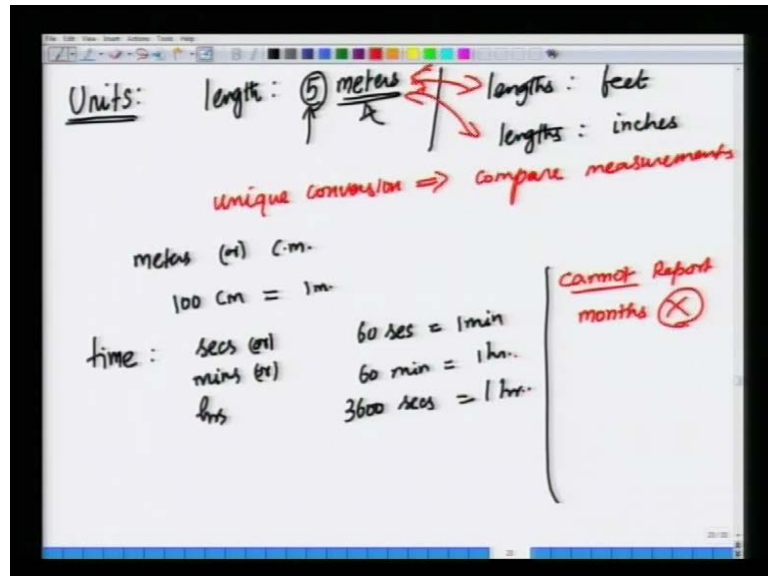 File Edit View Insert Actions Tools Help
Units: length: 5 meters lengths: feet
lengths: inches
unique conversion => compare measurements
meters (or) c.m.
100 cm = 1m.
time: secs (or) 60 ses = 1min
mins (or) 60 min = 1 hr..
hrs 3600 secs = 1 hr..
cannot Report
months X
20